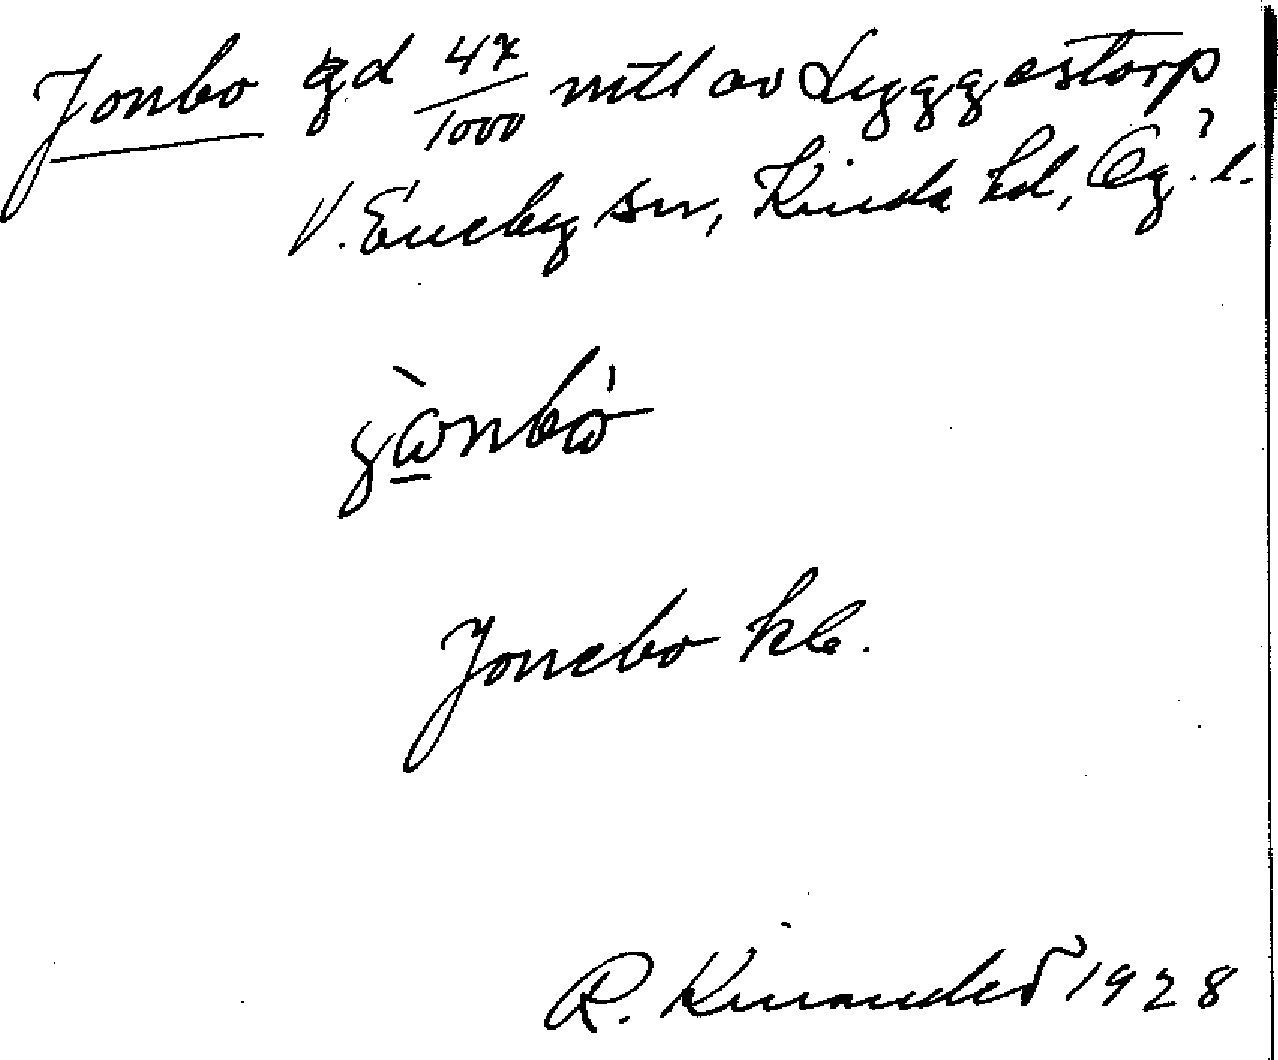 Jonbo gd 47/1000 mtl av Lyggestorp
V. Eneby sn, Kinda hd, Ög. l.
Jonebo kb.
R. Kinander 1928